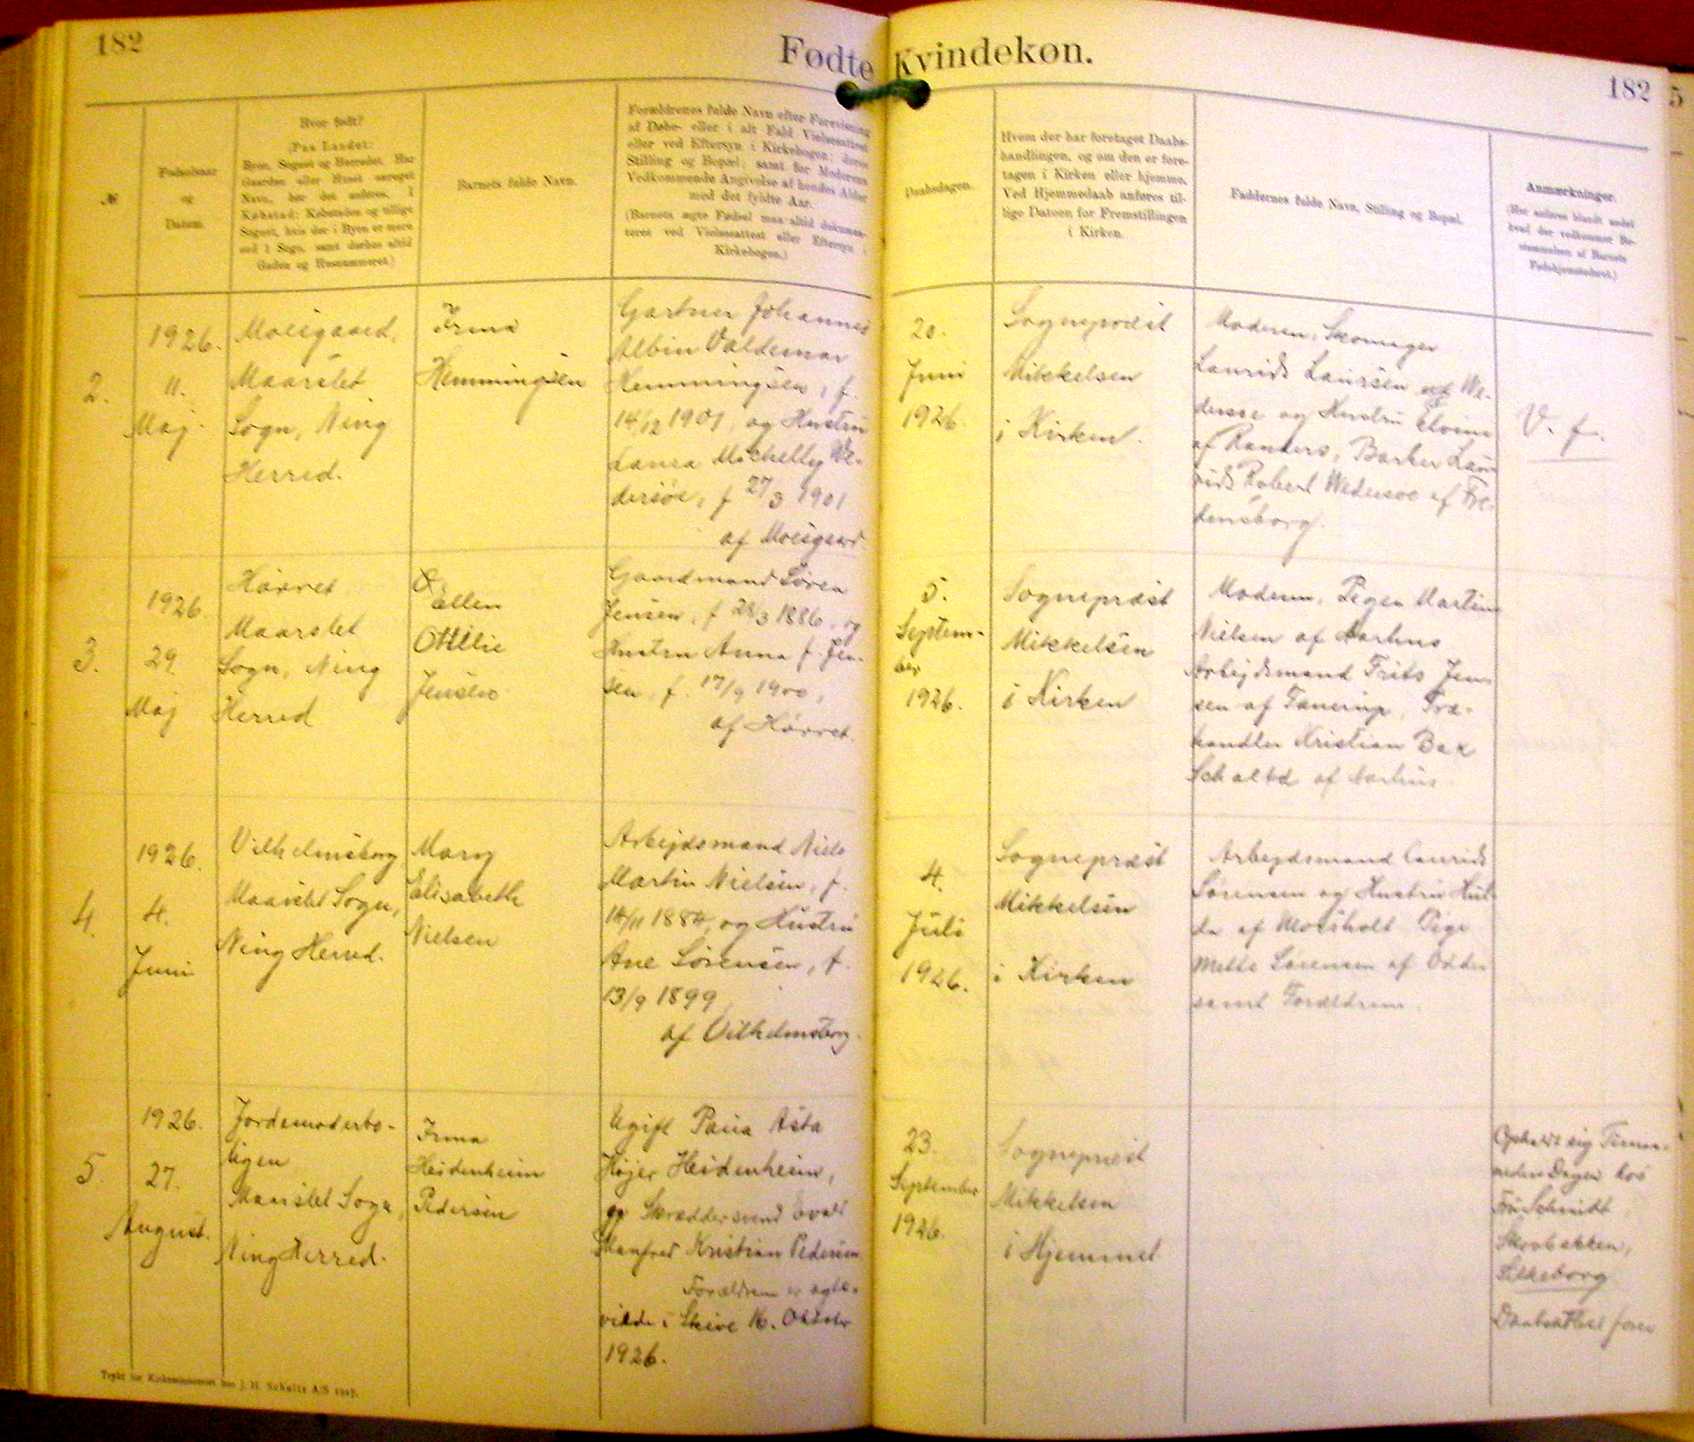 182
Fødte Kvindekøn.
182
5
№
Fødselsaar
og
Datum.
Hvor født?
(Paa Landet:
Byen, Sognet og Herredet. Har
Gaarden eller Huset særeget
Navn, bør det anføres. I
Købstad: Købstaden og tillige
Sognet, hvis der i Byen er mere
end 1 Sogn, samt derhos altid
Gaden og Husnummeret.)
Barnets fulde Navn.
Forældrenes fulde Navn efter Forevisning
af Døbe- eller i alt Fald Vielsesattest
eller ved Eftersyn i Kirkebogen; deres
Stilling og Bopæl; samt for Moderens
Vedkommende Angivelse af hendes Alder
med det fyldte Aar.
(Barnets ægte Fødsel maa altid dokumen-
teres ved Vielsesattest eller Eftersyn i
Kirkebogen.)
Daabsdagen.
Hvem der har foretaget Daabs-
handlingen, og om den er fore-
tagen i Kirken eller hjemme.
Ved Hjemmedaab anføres til-
lige Datoen for Fremstillingen
i Kirken.
Faddernes fulde Navn, Stilling og Bopæl.
Anmærkninger.
(Her anføres blandt andet
hvad der vedkommer Be-
stemmelsen af Barnets
Fødehjemstedsret.)
2.
1926.
11.
Maj.
Moesgaard,
Maarslet
Sogn, Ning
Herred.
Irma
Hemmingsen
Gartner Johannes
Albin Valdemar
Hemmingsen, f.
14/12 1901, og Hustru
Laura Michelly We-
dersøe, f 27/3 1901
af Moesgaard
20.
Juni
1926.
Sognepræst
Mikkelsen
i Kirken.
Moderen, Skomager
Laurids Laursen af We-
dersoe og Hustru Elvine
af Randers, Barber Lau-
rids Robert Wedersoe af Fre-
densborg.
V. f.
3.
1926
29.
Maj
Hørret
Maarslet
Sogn, Ning
Herred
Ellen
Ottilie
Jensen
Gaardmand Søren
Jensen, f 28/3 1886, og
Hustru Anna f. Jen-
sen, f. 17/9 1900,
af Hørret.
5.
Septem-
ber
1926.
Sognepræst
Mikkelsen
i Kirken
Moderen, Pigen Martine
Nielsen af Aarhus
Arbejdsmand Frits Jen-
sen af Tanerup, Træ-
handler Kristian Bax
af Aarhus
4.
1926.
4.
Juni
Vilhelmsborg
Maarslet Sogn,
Ning Herred.
Mary
Elisabeth
Nielsen
Arbejdsmand Niels
Martin Nielsen, f.
14/11 1884, og Hustru
Ane Sørensen, f.
13/9 1899
af Vilhelmsborg.
4.
Juli
1926.
Sognepræst
Mikkelsen
i Kirken
Arbejdsmand Laurids
Sørensen og Hustru Hul-
da af Moesholt Pige
Mette Sørensen af Odder
samt Forældrene.
5.
1926.
27.
August.
Jordemoderbo-
ligen
Maarslet Sogn,
Ning Herred.
Irma
Heidenheim
Pedersen
Ugift Paula Asta
Højer Heidenheim,
og Skræddersvend Evald
Manfred Kristian Pedersen
Forældrene er ægte-
viede i Skive 16. Oktober
1926.
23.
September
1926.
Sognepræst
Mikkelsen
i Hjemmet
Opholdt sig
hos
Fru Schmidt,
Skovbakken,
Silkeborg
Daabsattest
Trykt for Kirkeministeriet hos J. H. Schultz A/S